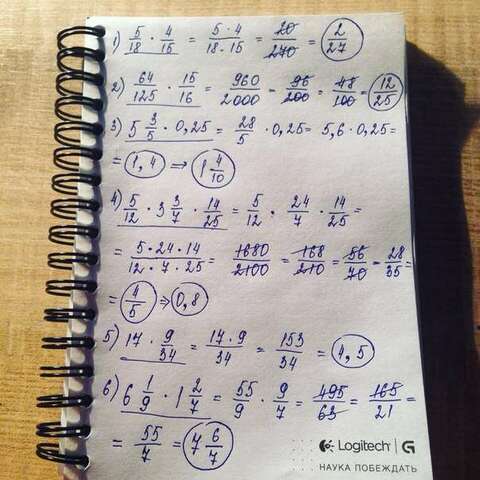 1) 5/18 · 4/15 = 5 · 4/18 · 15 = 20/270 = 2/27
2) 64/125 · 15/16 = 960/2000 = 96/200 = 48/100 = 12/25
3) 5 3/5 · 0,25 = 28/5 · 0,25 = 5,6 · 0,25 =
= 1,4 ⇒ 1 4/10
4) 5/12 · 3 3/7 · 14/25 = 5/12 · 24/7 · 14/25 =
= 5 · 24 · 14/12 · 7 · 25 = 1680/2100 = 168/210 = 56/70 = 28/35 =
= 4/5 ⇒ 0,8
5) 17 · 9/34 = 17 · 9/34 = 153/34 = 4,5
6) 6 1/9 · 1 2/7 = 55/9 · 9/7 = 495/63 = 165/21 =
= 55/7 = 7 6/7
Logitech | G
НАУКА ПОБЕЖДАТЬ